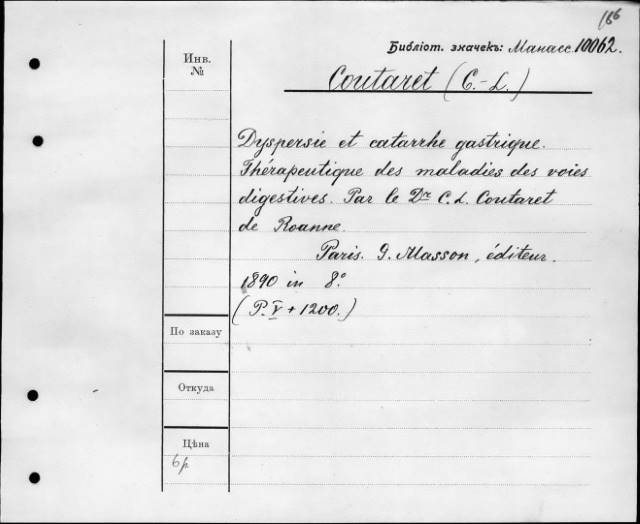 166
Библіот. значекъ: Манасс. 10062.
Инв.
№
Coutaret (C.-L.)
Dyspersie et catarrhe gastrique.
Thérapeutique des maladies des voies
digestives. Par le Dr C. L. Coutaret
de Roanne.
Paris. G. Masson, éditeur.
1890 in 8°.
(P. V + 1200.)
По заказу
Откуда
Цѣна
6 р